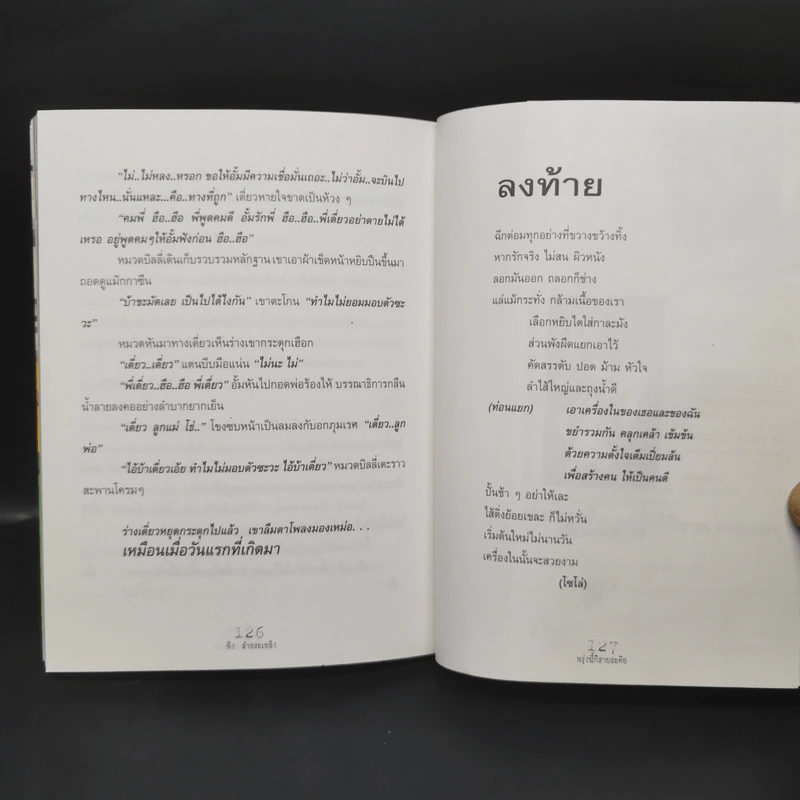 “ไม่..ไม่หลง..หรอก ขอให้อั้มมีความเชื่อมั่นเถอะ..ไม่ว่าอั้ม..จะบินไป
ทางไหน..นั่นแหละ...คือ..ทางที่ถูก” เดี่ยวหายใจขาดเป็นห้วง ๆ
“คมพี่ ฮือ..ฮือ พี่พูดคมดี อั้มรักพี่ ฮือ..ฮือ..พี่เดี่ยวอย่าตายไม่ได้
เหรอ อยู่พูดคมๆให้อั้มฟังก่อน ฮือ..ฮือ”
หมวดบิลลี่เดินเก็บรวบรวมหลักฐาน เขาเอาผ้าเช็ดหน้าหยิบปืนขึ้นมา
ถอดดูแม๊กกาซีน
“บ้าชะมัดเลย เป็นไปได้ไงกัน” เขาตะโกน “ทำไมไม่ยอมมอบตัวซะ
วะ”
หมวดหันมาทางเดี่ยวเห็นร่างเขากระตุกเฮือก
“เดี่ยว..เดี่ยว” แตนบีบมือแน่น “ไม่นะ ไม่”
“พี่เดี่ยว..ฮือ..ฮือ พี่เดี่ยว” อั้มหันไปกอดพ่อร้องไห้ บรรณาธิการกลืน
น้ำลายลงคออย่างลำบากยากเย็น
“เดี่ยว ลูกแม่ โฮ่..” โฉงซบหน้าเป็นลมลงกับอกภุมเรศ “เดี่ยว..ลูก
พ่อ”
“ไอ้บ้าเดี่ยวเอ้ย ทำไมไม่มอบตัวซะวะ ไอ้บ้าเดี่ยว” หมวดบิลลี่เตะราว
สะพานโครมๆ
ร่างเดี่ยวหยุดกระตุกไปแล้ว เขาลืมตาโพลงมองเหม่อ...
เหมือนเมื่อวันแรกที่เกิดมา
126
ลงท้าย
ฉีกต่อมทุกอย่างที่ขวางขว้างทิ้ง
หากรักจริง ไม่สน ผิวหนัง
ลอกมันออก ถลอกก็ช่าง
แล่แม้กระทั่ง กล้ามเนื้อของเรา
เลือกหยิบไตใส่กาละมัง
ส่วนพังผืดแยกเอาไว้
คัดสรรตับ ปอด ม้าม หัวใจ
ลำไส้ใหญ่และถุงน้ำดี
(ท่อนแยก) เอาเครื่องในของเธอและของฉัน
ขยำรวมกัน คลุกเคล้า เข้มข้น
ด้วยความตั้งใจเต็มเปี่ยมล้น
เพื่อสร้างคน ให้เป็นคนดี
ปั้นช้า ๆ อย่าให้เละ
ไส้ติ่งย้อยเขละ ก็ไม่หวั่น
เริ่มต้นใหม่ไม่นานวัน
เครื่องในนั้นจะสวยงาม
(โซโล่)
127
พรุ่งนี้ก็สายสะดือ